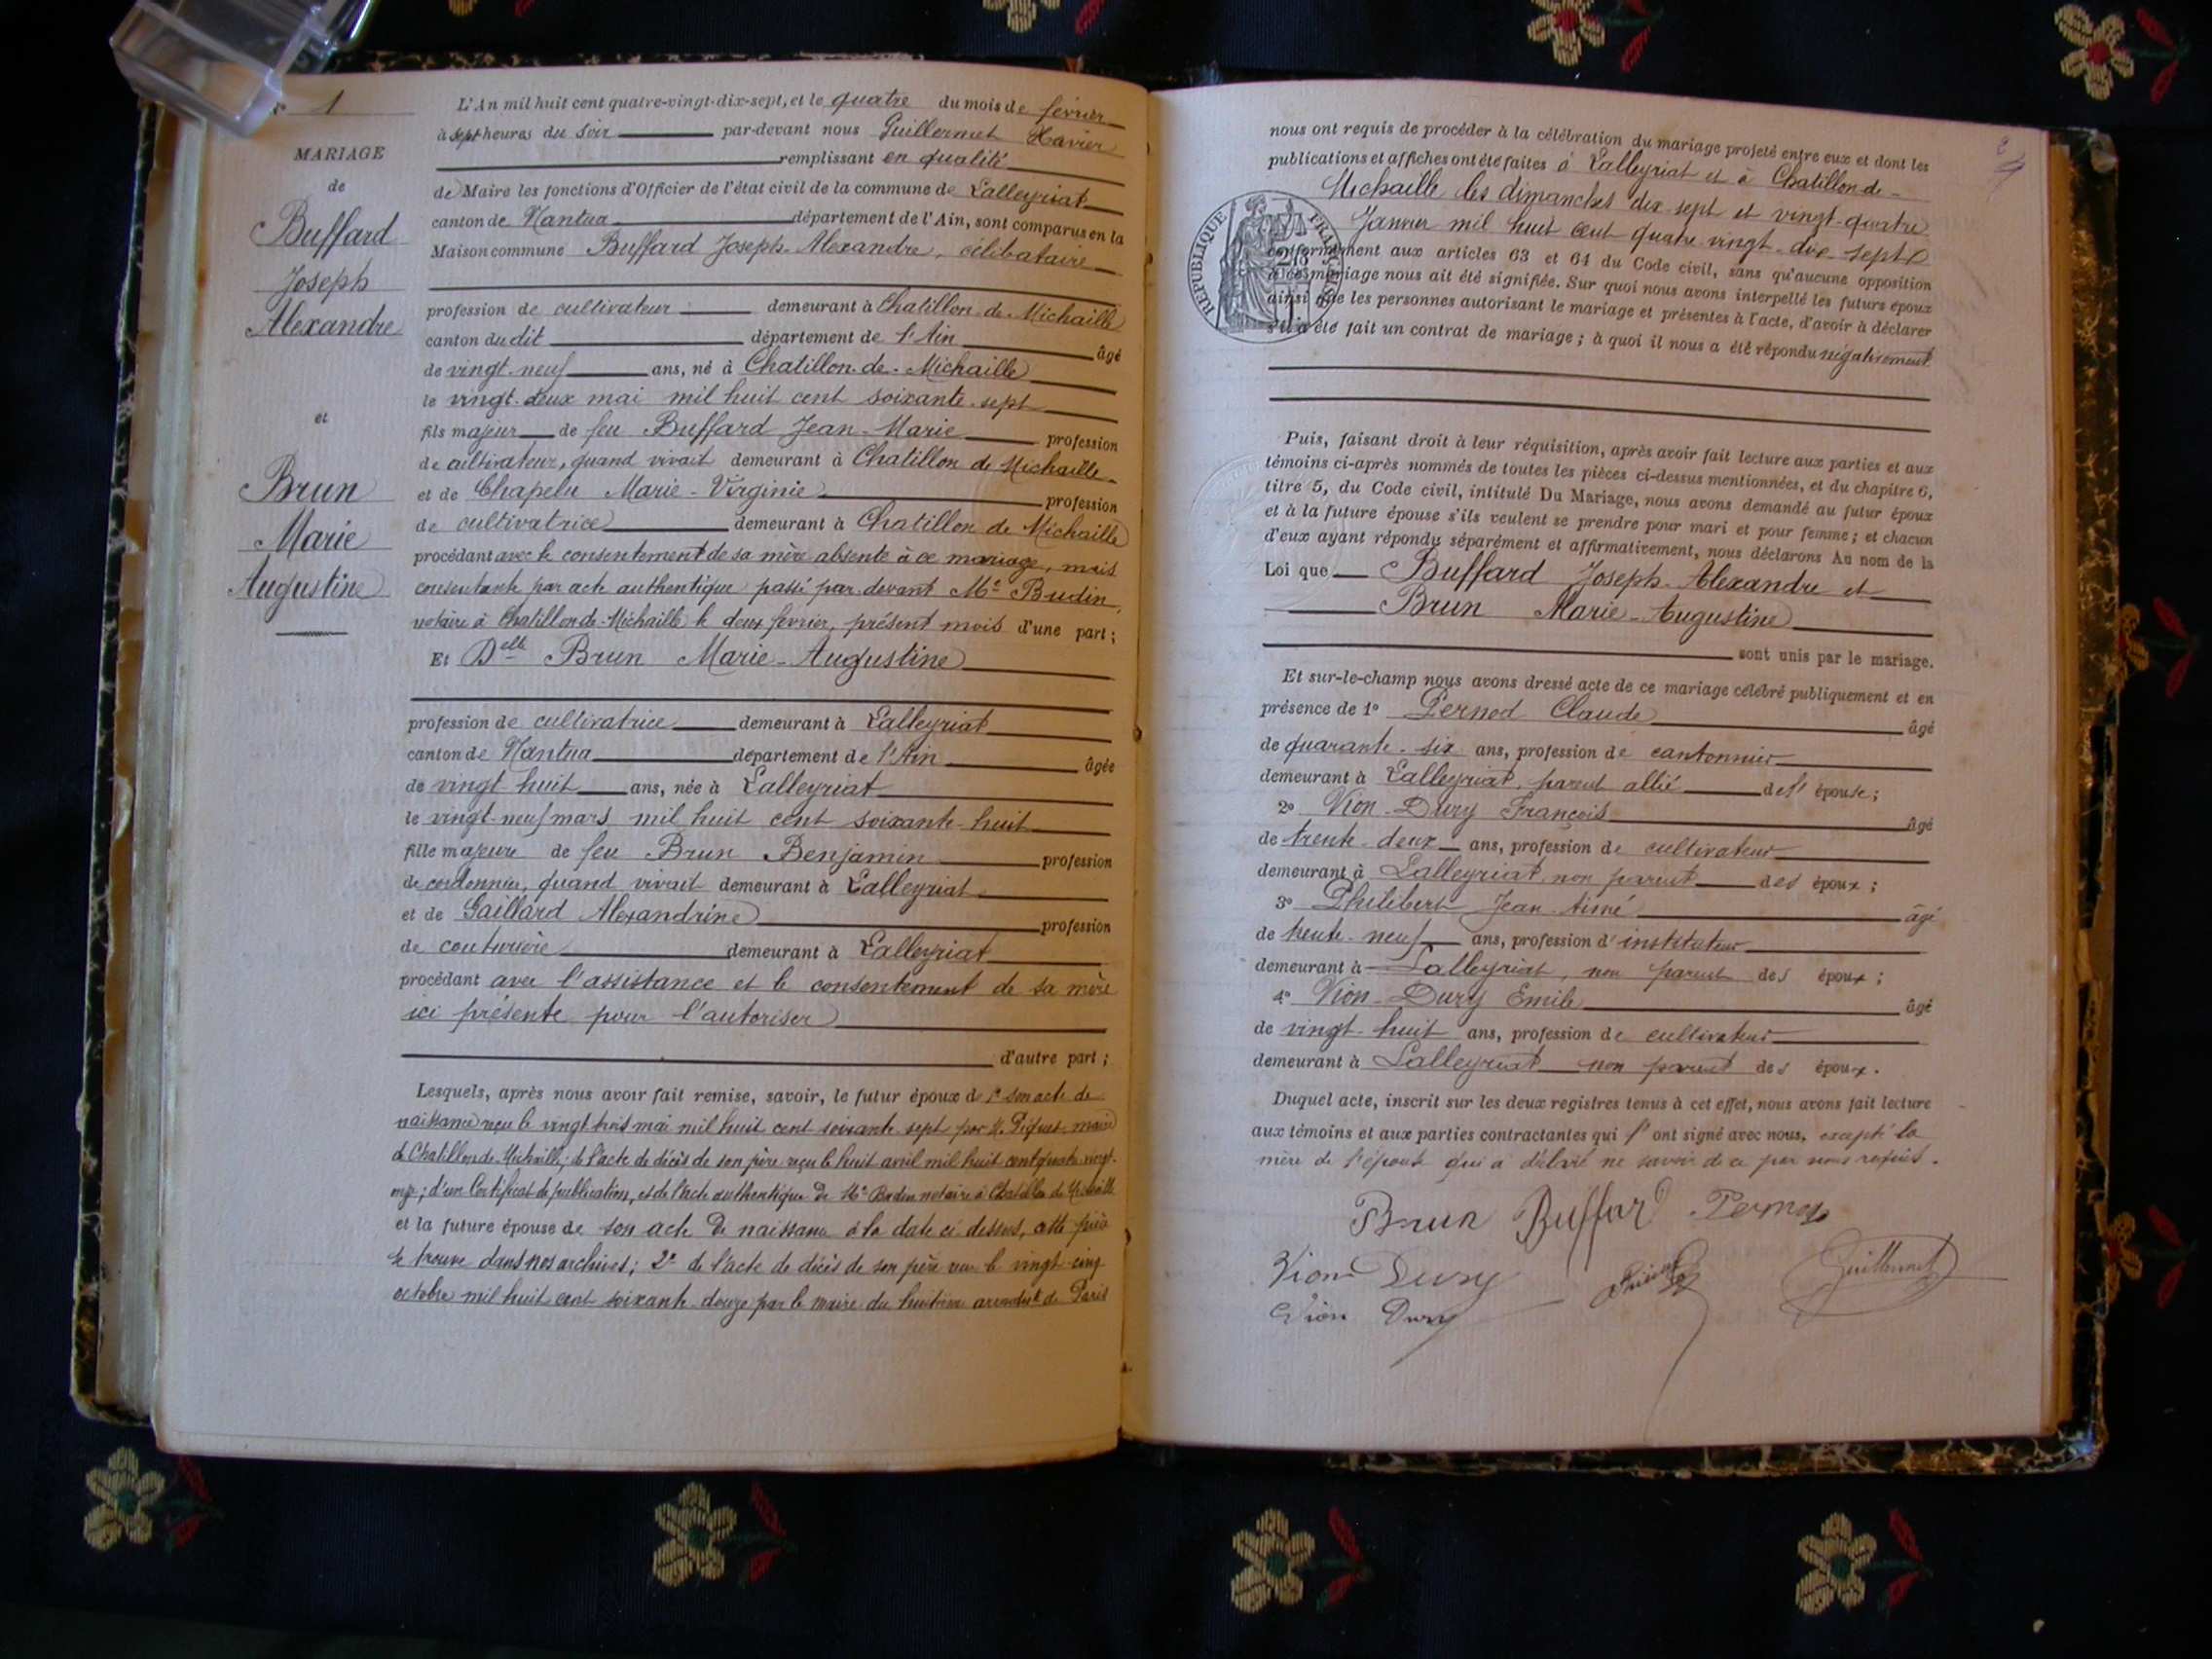 1
MARIAGE
de
Buffard
Joseph
Alexandre
et
Brun
Marie
Augustine
L'An mil huit cent quatre-vingt-dix-sept, et le quatre du mois de février
à sept heures du soir par-devant nous Guillermet Xavier
remplissant en qualité
de Maire les fonctions d'Officier de l'état civil de la commune de Lalleyriat
canton de Nantua département de l'Ain, sont comparus en la
Maison commune Buffard Joseph-Alexandre, célibataire
profession de cultivateur demeurant à Chatillon-de-Michaille
canton du dit département de l'Ain âgé
de vingt-neuf ans, né à Chatillon-de-Michaille
le vingt-deux mai mil huit cent soixante-sept
fils majeur de feu Buffard Jean-Marie profession
de cultivateur, quand vivait demeurant à Chatillon de Michaille
et de Chapelu Marie-Virginie profession
de cultivatrice demeurant à Chatillon de Michaille
procédant avec le consentement de sa mère absente à ce mariage, mais
consentante par acte authentique passé par-devant Me Budin,
notaire à Chatillon-de-Michaille le deux février, présent mois d'une part;
Et Delle Brun Marie-Augustine
profession de cultivatrice demeurant à Lalleyriat
canton de Nantua département de l'Ain âgée
de vingt-huit ans, née à Lalleyriat
le vingt-neuf mars mil huit cent soixante-huit
fille majeure de feu Brun Benjamin profession
de cordonnier, quand vivait demeurant à Lalleyriat
et de Gaillard Alexandrine profession
de couturière demeurant à Lalleyriat
procédant avec l'assistance et le consentement de sa mère
ici présente pour l'autoriser
d'autre part;
Lesquels, après nous avoir fait remise, savoir, le futur époux de 1° son acte de
naissance reçu le vingt trois mai mil huit cent soixante-sept par M. maire
de Chatillon de Michaille; de l'acte de décès de son père reçu le huit avril mil huit cent quatre-vingt-
; d'un Certificat de publication, et de l'acte authentique de Me Budin notaire à Chatillon de Michaille
et la future épouse de son acte de naissance à la date ci-dessus, cette pièce
se trouve dans nos archives; 2° de l'acte de décès de son père reçu le vingt-cinq
octobre mil huit cent soixante-douze par le maire du huitième arrondist de Paris
2
nous ont requis de procéder à la célébration du mariage projeté entre eux et dont les
publications et affiches ont été faites à Lalleyriat et à Chatillon-de-
Michaille les dimanches dix-sept et vingt-quatre
Janvier mil huit cent quatre-vingt-dix-sept
REPUBLIQUE FRANÇAISE
conformément aux articles 63 et 64 du Code civil, sans qu'aucune opposition
à ce mariage nous ait été signifiée. Sur quoi nous avons interpellé les futurs époux
ainsi que les personnes autorisant le mariage et présentes à l'acte, d'avoir à déclarer
s'il a été fait un contrat de mariage; à quoi il nous a été répondu négativement
Puis, faisant droit à leur réquisition, après avoir fait lecture aux parties et aux
témoins ci-après nommés de toutes les pièces ci-dessus mentionnées, et du chapitre 6,
titre 5, du Code civil, intitulé Du Mariage, nous avons demandé au futur époux
et à la future épouse s'ils veulent se prendre pour mari et pour femme; et chacun
d'eux ayant répondu séparément et affirmativement, nous déclarons Au nom de la
Loi que Buffard Joseph-Alexandre et
Brun Marie-Augustine
sont unis par le mariage.
Et sur-le-champ nous avons dressé acte de ce mariage célébré publiquement et en
présence de 1° Pernod Claude âgé
de quarante-six ans, profession de cantonnier
demeurant à Lalleyriat, parent allié de l' épouse;
2° Vion-Dury François âgé
de trente-deux ans, profession de cultivateur
demeurant à Lalleyriat non parent des époux;
3° Philibert Jean-Aimé âgé
de trente-neuf ans, profession d'instituteur
demeurant à Lalleyriat, non parent des époux;
4° Vion-Dury Emile âgé
de vingt-huit ans, profession de cultivateur
demeurant à Lalleyriat non parent des époux.
Duquel acte, inscrit sur les deux registres tenus à cet effet, nous avons fait lecture
aux témoins et aux parties contractantes qui l'ont signé avec nous, excepté la
mère de l'épouse qui a déclaré ne savoir de ce par nous requis.
Brun Buffard Pernod
Vion Dury Guillermet
Vion Dury